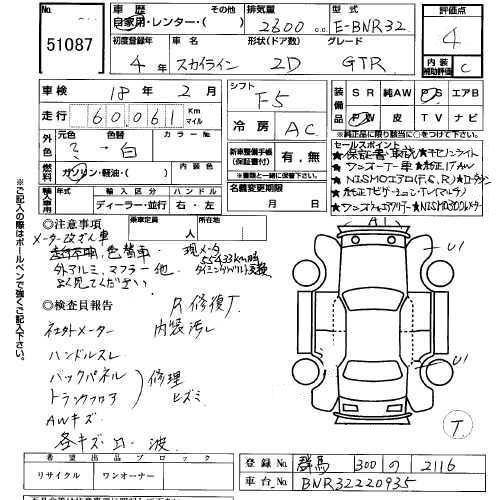 No.
51087
車歴
その他
自家用・レンター・( )
排気量
2600 cc
型式
E-BNR32
評価点
4
内装補助評価 C
初度登録年
4 年
車名
スカイライン
形状(ドア数)
2D
グレード
GTR
車検
18 年 2 月
走行
60,061 Km マイル
シフト
F5
冷房
AC
装備品
SR 純AW PS エアB
PW 皮 TV ナビ
※純正品に限り該当に○をつけて下さい。
外色
元色
色替
カラーNo.
? → 白
燃料
ガソリン・軽油・( )
内装色
新車整備手帳
(保証書付)
有・無
セールスポイント
★保証書・取説
★ワンオーナー車 ★純正17AW
★NISMOエアロ(F,S,R)
★NISMO300Kmメーター
輸入車用
年式
輸入区分
ハンドル
ディーラー・並行
右・左
名義変更期限
月 日
※ご記入の際はボールペンで強くご記入下さい。
◎注意事項
乗車定員
人
所有権
メーター改ざん車
走行不明, 色替車.
現メータ
55433km時
タイミングベルト交換
外アルミ, マフラー 他.
よく見てください
◎検査員報告
R修復了.
社外メーター
内装汚レ
ハンドルスレ
バックパネル
トランクフロア
修理
ヒズミ
AWキズ
各キズ 凹 波
A1
U1
U1
T
希望出品ブロック
リサイクル
ワンオーナー
登録No.
群馬 300 の 2116
車台No.
BNR32220935